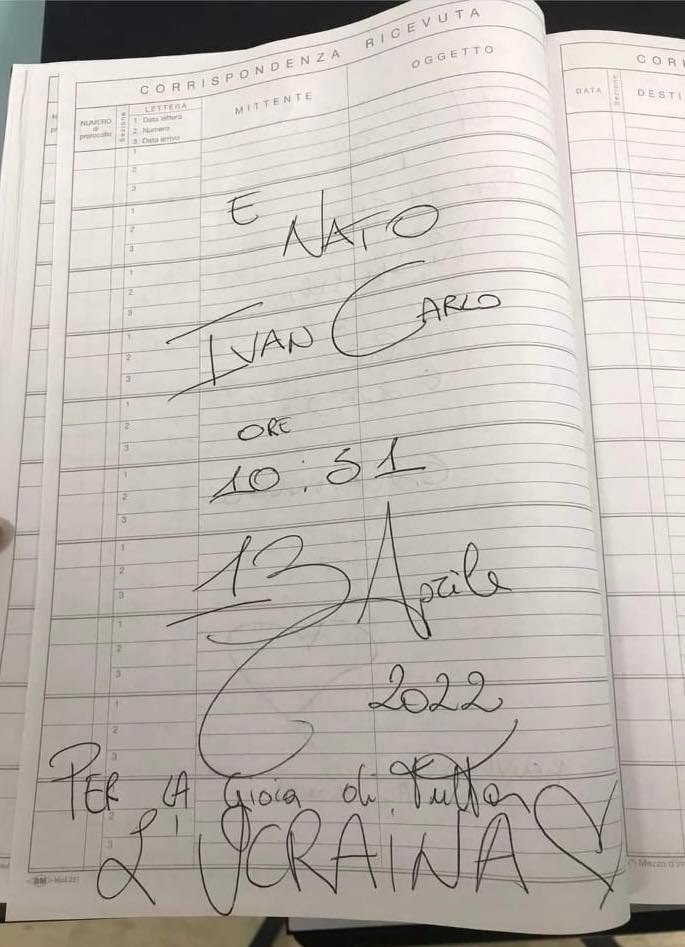 CORRISPONDENZA RICEVUTA
NUMERO
di
protocollo
Sezione
LETTERA
1 Data lettera
2 Numero
3 Data arrivo
MITTENTE
OGGETTO
1
2
3
1
2
3
1
2
3
1
2
3
1
2
3
1
2
3
1
2
3
1
2
3
1
2
3
2
3
E
NATO
IVAN CARLO
ORE
10:51
13 Aprile
2022
PER LA gioia di Tutta
L'UCRAINA
BM
DATA
Sezione
DESTI